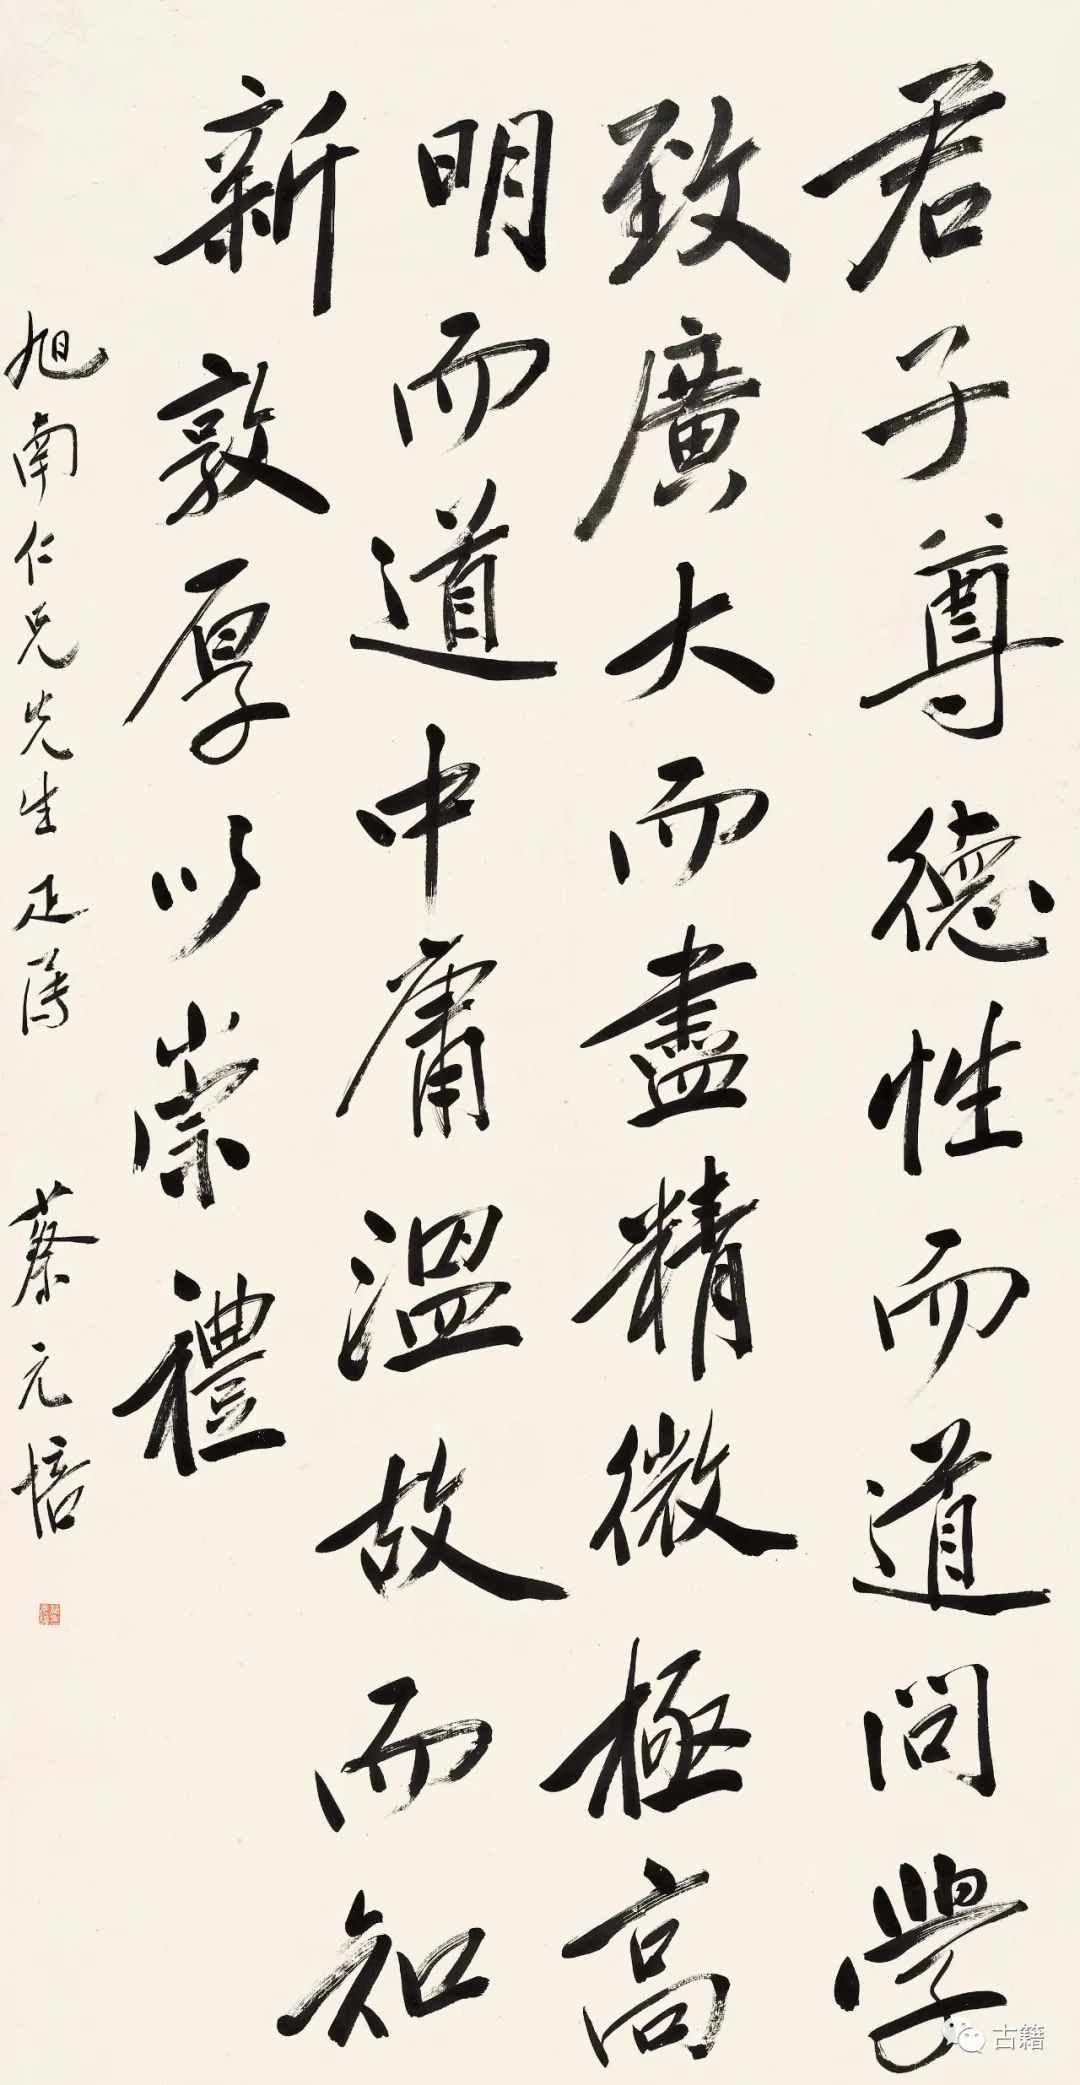 君子尊德性而道問學
致廣大而盡精微極高
明而道中庸溫故而知
新敦厚以崇禮
旭南仁兄先生正属
蔡元培
古籍